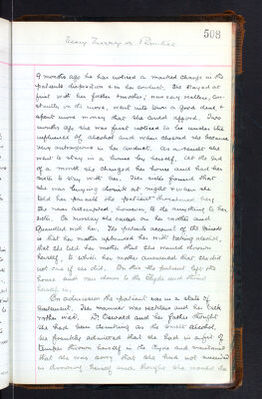 508
9 months ago he has noticed a marked change in the
patients disposition & in her conduct. She stayed at
first with her father & mother, was very restless, con-
stantly on the move, went into town a good deal &
spent more money than she could afford. Two
months ago she was first noticed to be under the
influence of alcohol and when checked she became
very outrageous in her conduct. As a result she
went to stay in a house by herself. At the end
of a month she changed her house and had her
sister to stay with her. The sister found that
she was buying drink at night & when she
told her parents the patient threatened her,
she never attempted however to do anything to her
sister. On Monday she called on her mother and
quarrelled with her. The patients account of the
is that her mother upbraided her with taking alcohol,
that she told her mother that she would drown
herself, to which her mother answered that she did
not care if she did. On this the patient left the
house and ran down to the Clyde and threw
herself in.
On admission the patient was in a state of
excitement. Her manner was restless and her talk
rather wild. Dr Oswald and her father thought
she had been drinking as she smelt alcohol.
She frankly admitted that she had in a fit of
temper thrown herself in the Clyde and maintained
that she was sorry that she had not succeeded
in drowning herself and though she wanted to